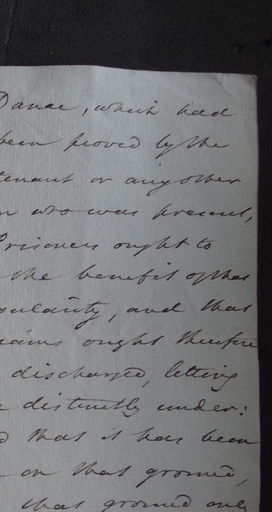 Danae, which had
been proved by the
tenant or any other
n who was present,
Prisoners ought to
the benefit of that
gularity, and that
ought therefore
discharged, letting
distinctly under:
d that it has been
on that ground,
that ground only